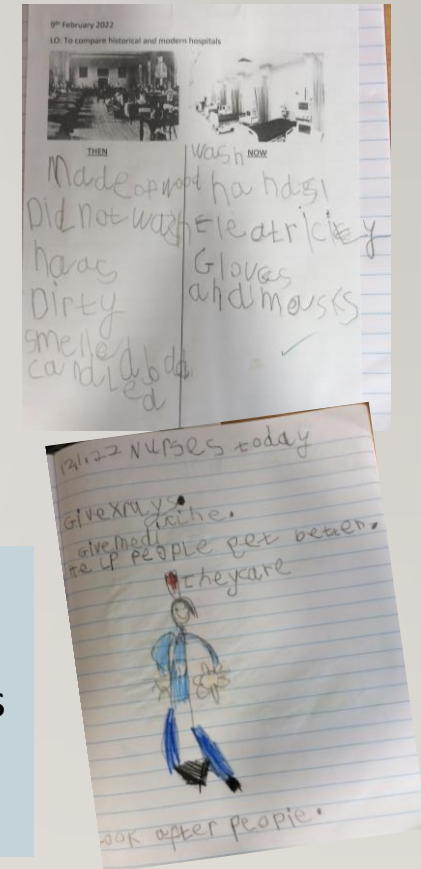 9th February 2022
LO: To compare historical and modern hospitals
THEN
Made of wood
Did not wash
hads
Dirty
smelled bda
candled
NOW
wash
hands!
Eleatricity
Gloves
and mousks
12.1.22 Nurses today
Give xrays.
Give medi
icine.
Help people get better.
they care
look after people.
s